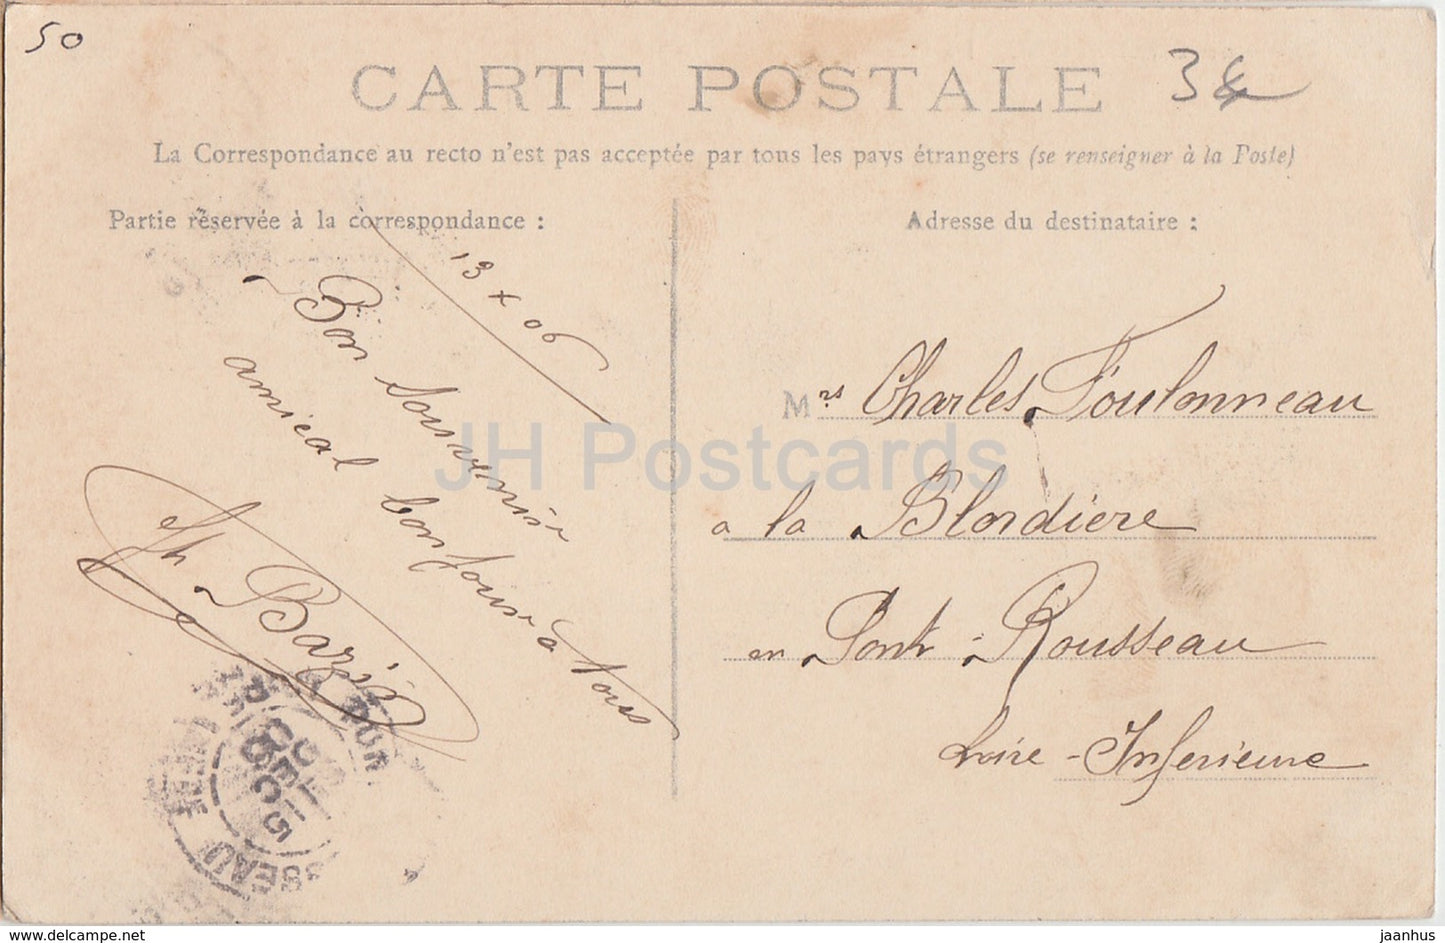 50
CARTE POSTALE
3€
La Correspondance au recto n'est pas acceptée par tous les pays étrangers (se renseigner à la Poste)
Partie réservée à la correspondance :
13 x 06
Bon Souvenir
amical bonjour a tous
Jh. Bazié
Adresse du destinataire :
Mrs Charles Toulonneau
a la Blordiere
en Pont-Rousseau
Loire-Inferieure
JH Postcards
www.delcampe.net
jaanhus